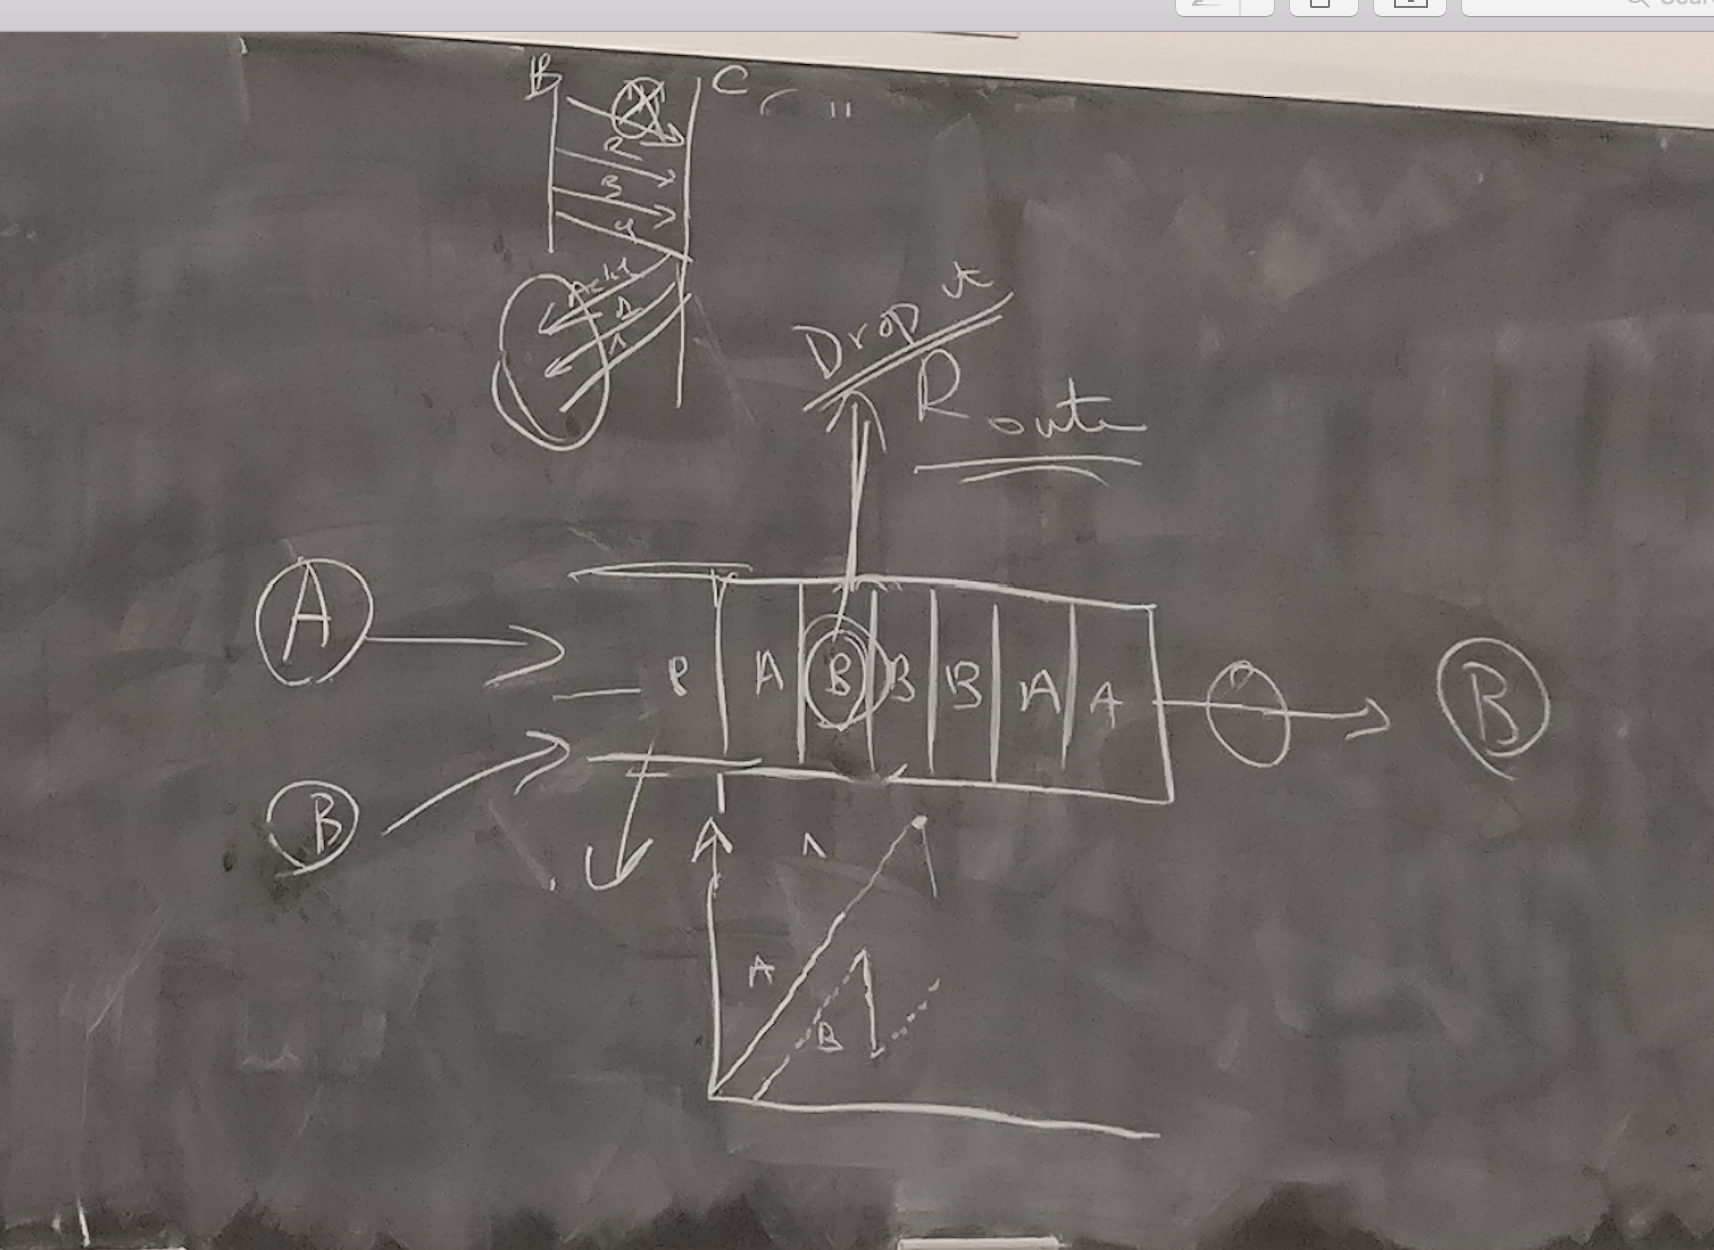 B C
R
3
4
Ack1
A
A
Drop it
Route
A
P A B B B A A
B
B
A
A
B